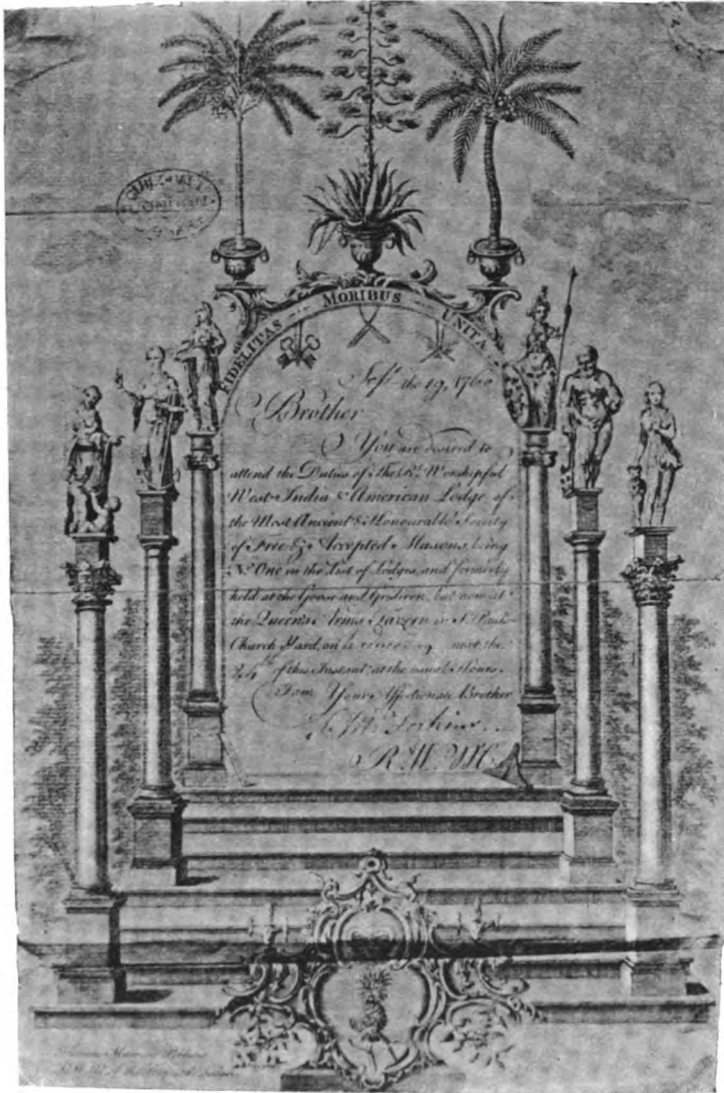 GUILDHALL
LIBRARY
FIDELITAS MORIBUS UNITA
Sept. the 19, 176
Brother
You are desired to
attend the Duties of the Rt. Worshipful
West India & American Lodge, of
the Most Ancient & Honourable Society
of Free & Accepted Masons, being
No. One in the List of Lodges, and formerly
held at the Goose and Gridiron, but now at
the Queen's Arms Tavern in St. Pauls
Church Yard, on next the
24th of this Instant, at the usual Hours.
I am Your Affectionate Brother
R. W. M.